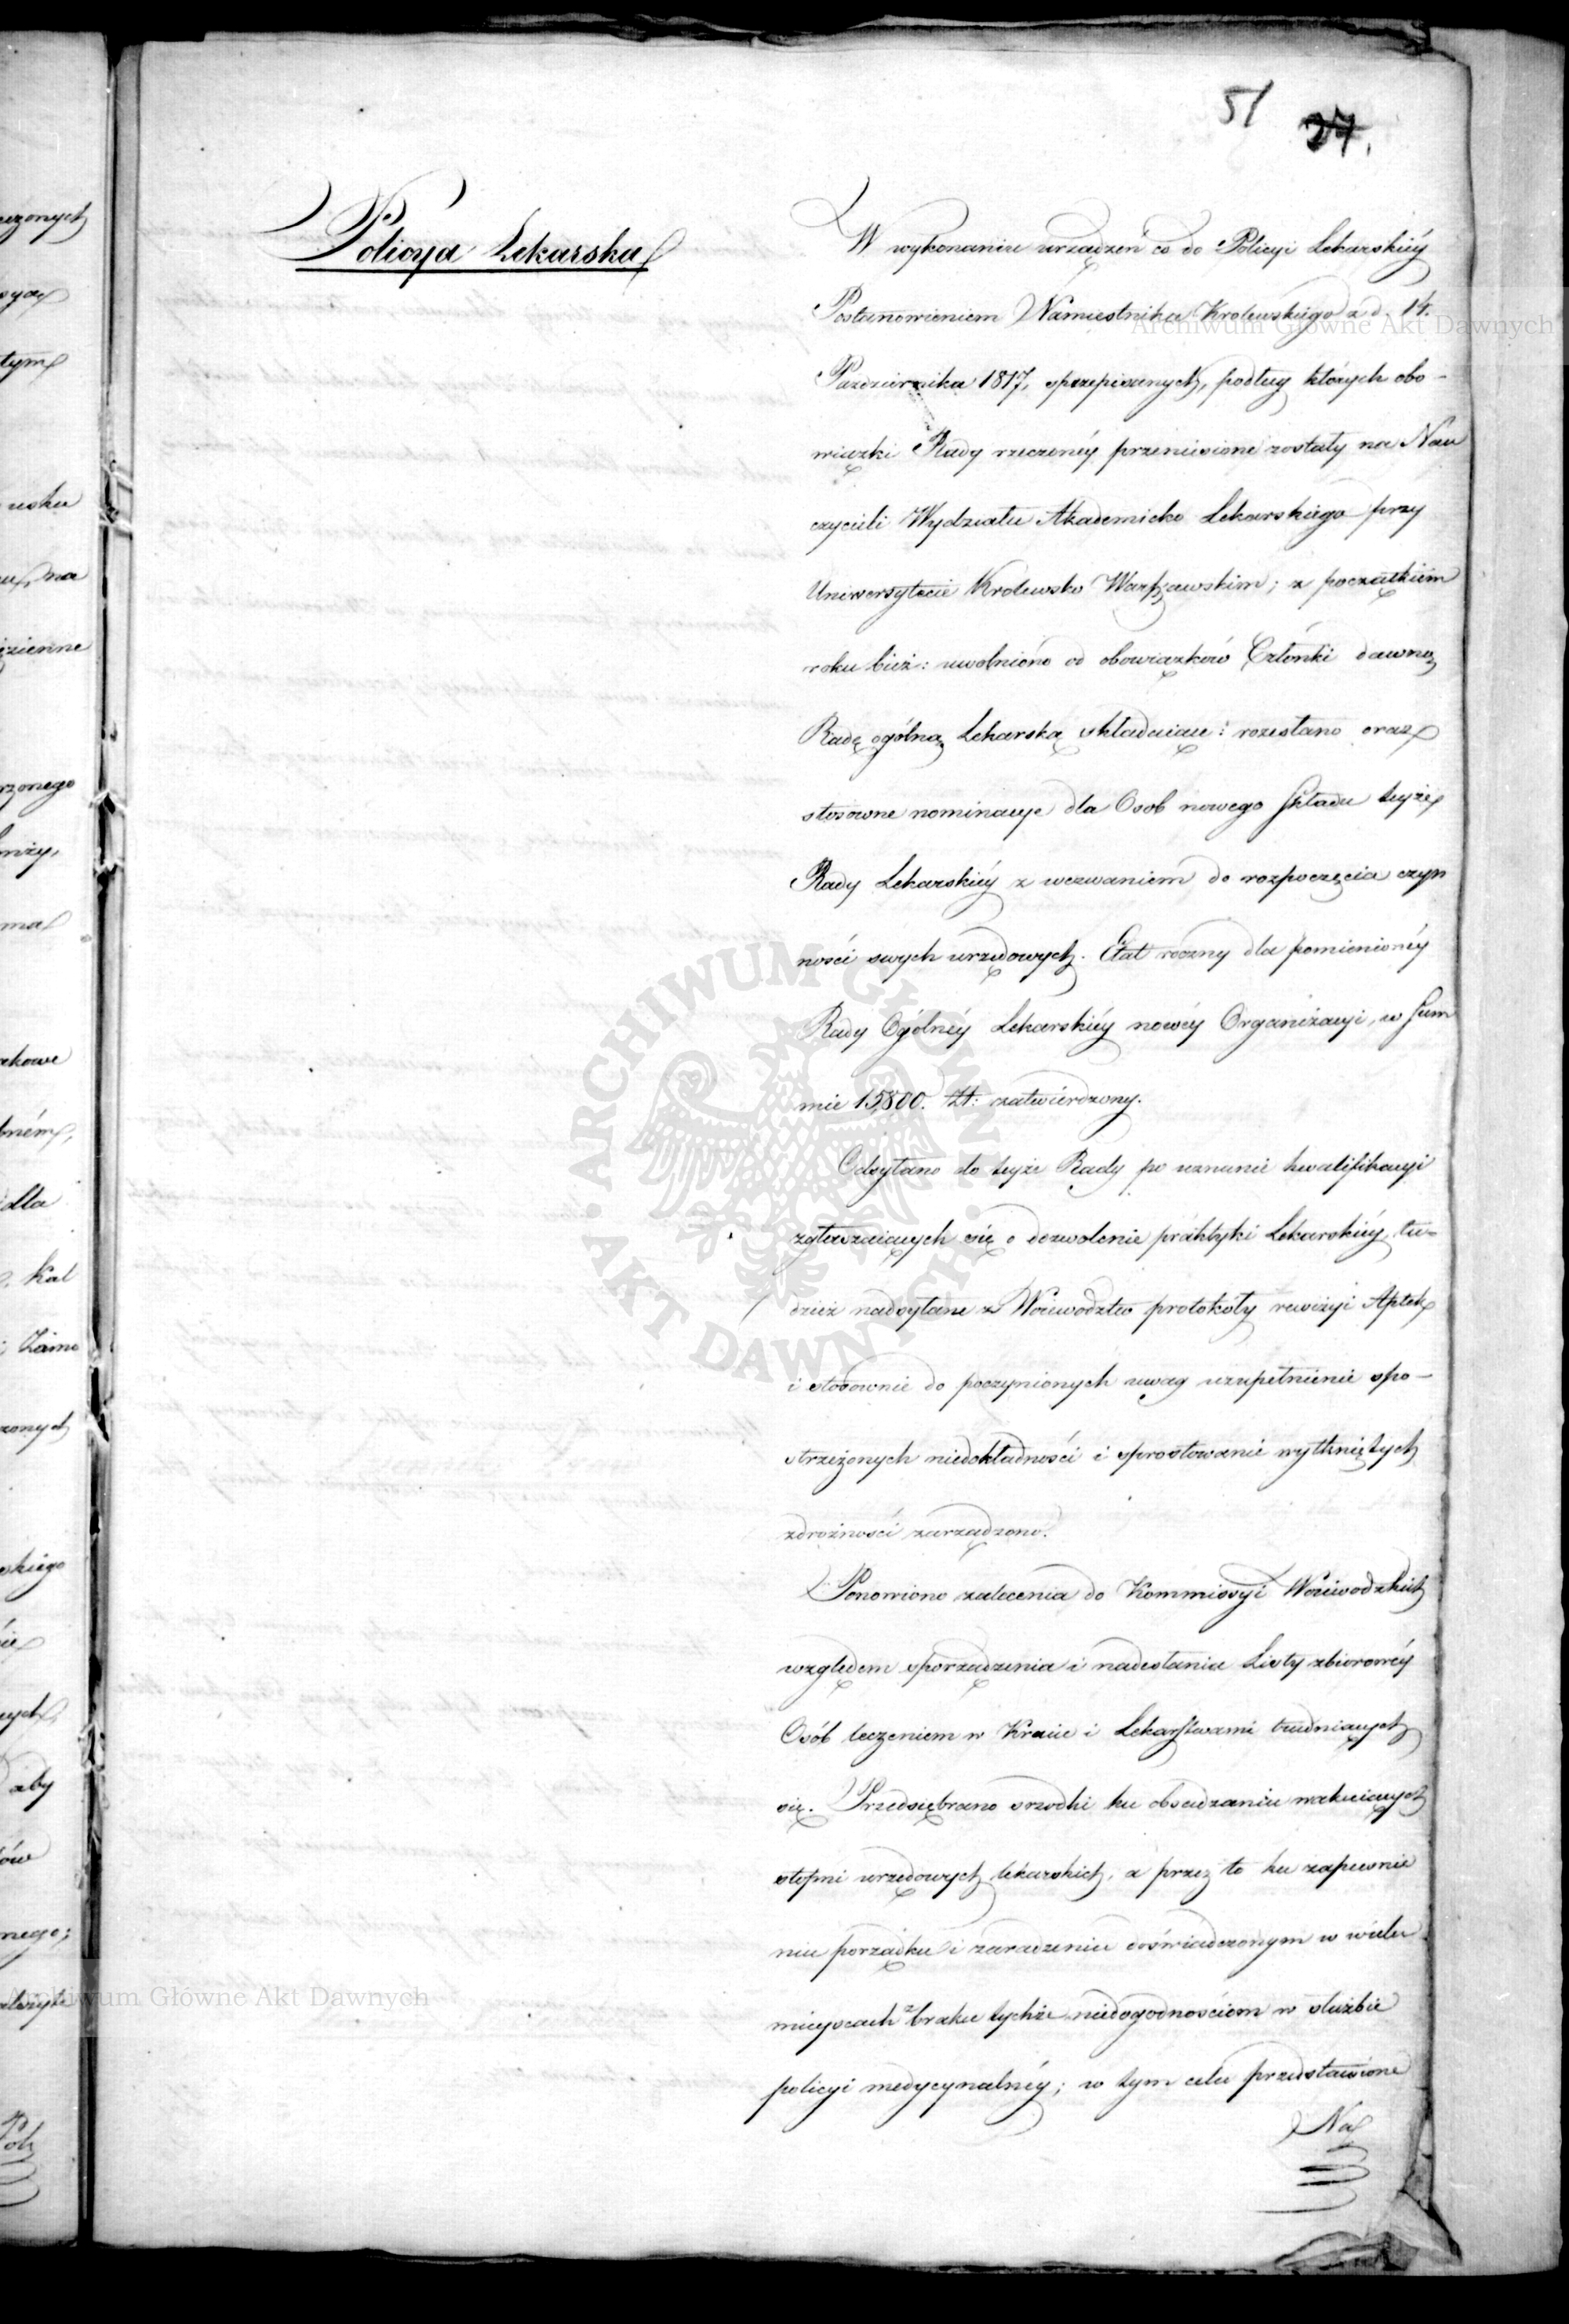 51
27.
Policya Lekarska
W wykonaniu urządzeń co do Policyi Lekarskiéy
Postanowieniem Namiestnika Krolewskiego z d. 14.
Pazdziernika 1817, przepisanych, podług których obo-
wiązki Rady rzeczonéy przeniesione zostały na Nau
czycieli Wydziału Akademicko Lekarskiego przy
Uniwersytecie Krolewsko Warszawskim; z początkiem
roku bież: uwolniono od obowiązków Członki dawną
Radę ogólną Lekarską składaiące: rozesłano oraz
stosowne nominacye dla Osob nowego składu teyże
Rady Lekarskiéy z wezwaniem do rozpoczęcia czyn
ności swych urzędowych. Etat roczny dla pomienionéy
Rady Ogólnéy Lekarskiéy nowéy Organizacyi, w Sum
mie 15800. Zł: zatwierdzony.
Odsyłano do teyże Rady po uznanie kwalifikacyi
zgłaszaiących się o dozwolenie praktyki Lekarskiéy, tu-
dzież nadsyłane z Woiewodztw protokoły rewizyi Aptek
i stosownie do poczynionych uwag uzupełnienie spo-
strzeżonych niedokładności i sprostowanie wytkniętych
zdrożności zarządzono.
Ponowiono zalecenia do Kommissyi Woiewodzkich
względem sporządzenia i nadesłania Listy zbiorowéy
Osób leczeniem w Kraiu i Lekarstwami trudniących
się. Przedsiębrano srzodki ku obsadzaniu wakuiących
stopni urzędowych lekarskich, a przez to ku zapewnie
niu porządku i zaradzeniu doświadczonym w wielu
mieyscach z braku tychże niedogodnościom w służbie
policyi medycynalnéy; w tym celu przedstawione
Na
Archiwum Główne Akt Dawnych
ARCHIWUM GŁÓWNE AKT DAWNYCH
Archiwum Główne Akt Dawnych